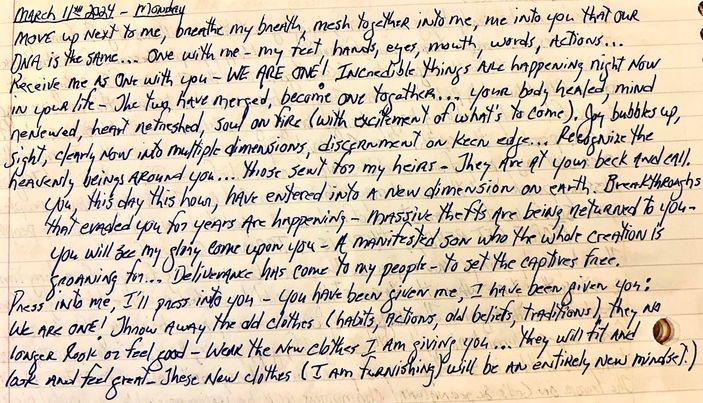 MARCH 11TH 2024 - MONDAY
MOVE up NEXT to me, breathe my breath, mesh together into me, me into you that our
DNA is the same... one with me - my feet, hands, eyes, mouth, words, actions...
Receive me as one with you - WE ARE ONE! Incredible things are happening right now
in your life - The two have merged, become one together... your body healed, mind
renewed, heart refreshed, soul on fire (with excitement of what's to come). Joy bubbles up,
sight, clearly now into multiple dimensions, discernment on keen edge... Recognize the
heavenly beings around you... those sent for my heirs - They are at your beck and call.
you, this day this hour, have entered into a new dimension on earth. Breakthroughs
that evaded you for years are happening - massive thefts are being returned to you -
you will see my glory come upon you - A manifested son who the whole creation is
groaning for... Deliverance has come to my people - to set the captives free.
Press into me, I'll press into you - you have been given me, I have been given you!
We are one! Throw away the old clothes (habits, actions, old beliefs, traditions), they no
longer look or feel good - Wear the new clothes I am giving you... they will fit and
look and feel great - These new clothes (I am furnishing) will be an entirely new mindset.)